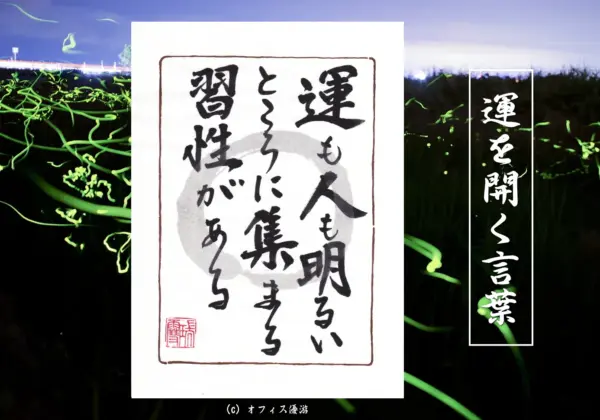 運を開く言葉
運も人も明るい
ところに集まる
習性がある
(C) オフィス優游